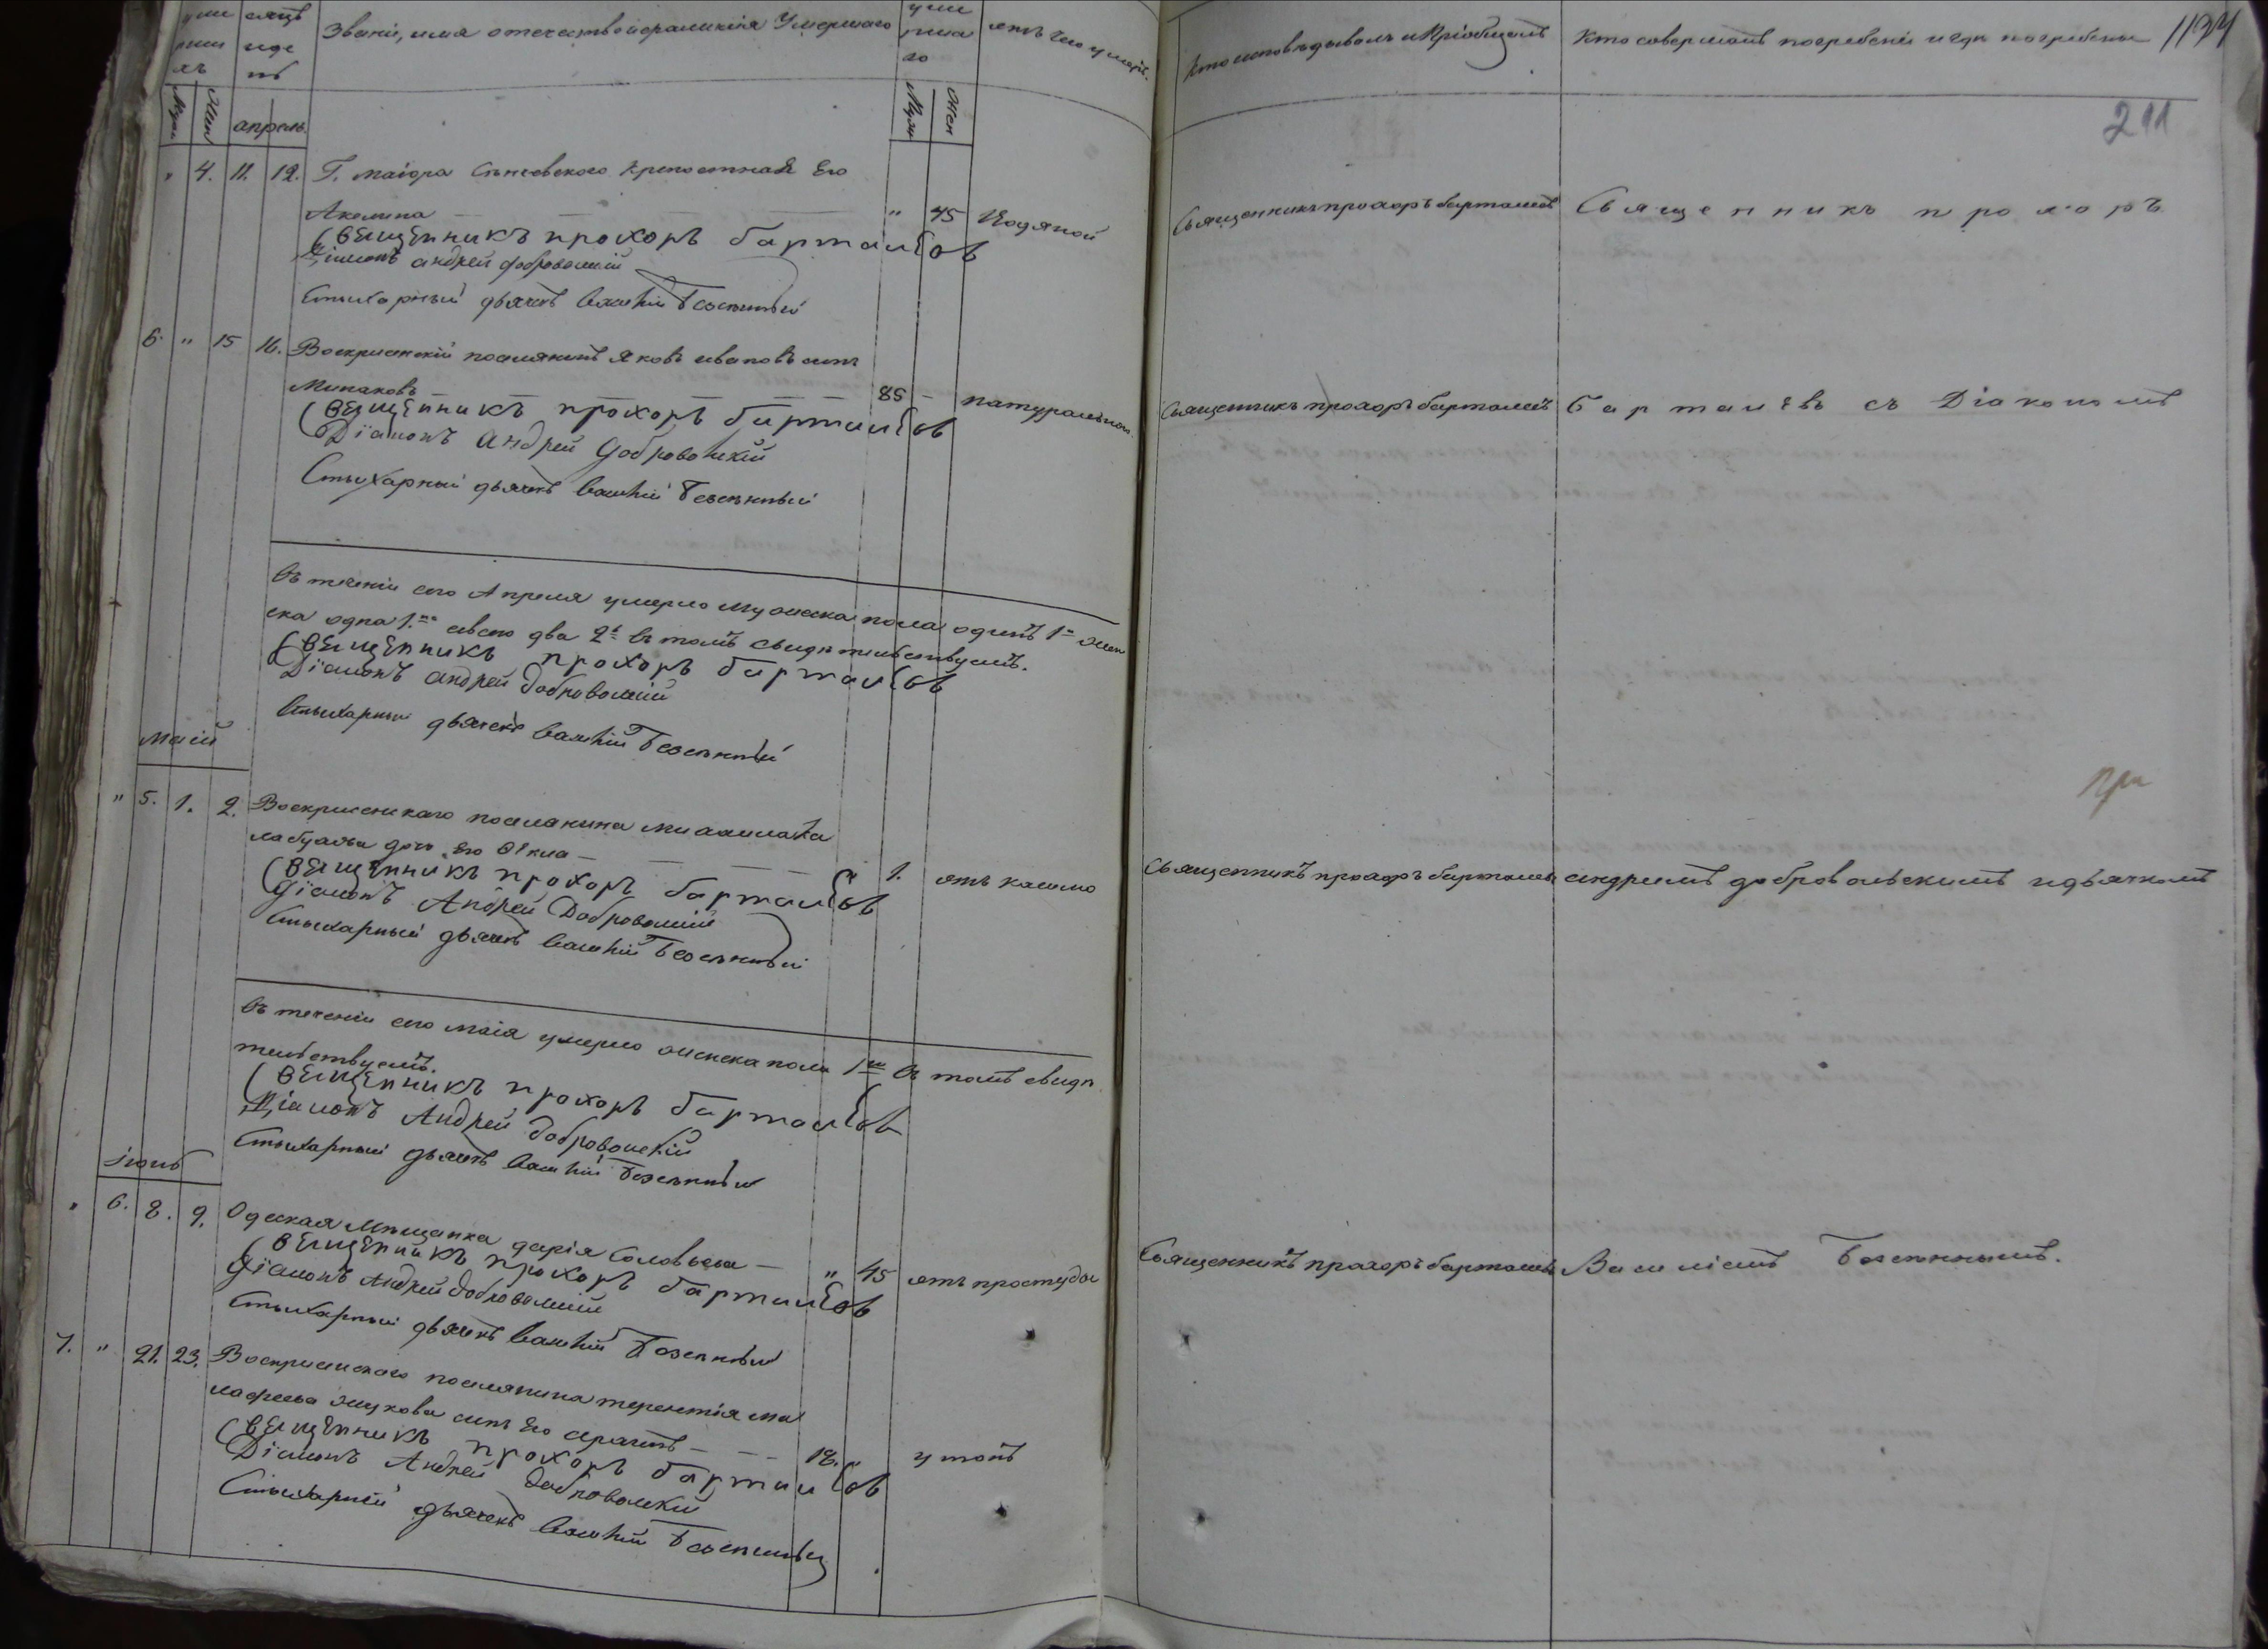 уме рши хъ
сяцъ иде нь
Званіе, имя отечество и фамилія Умершаго
уме рша го
отъ чего умеръ.
Кто исповѣдывалъ и Пріобщалъ
Кто совершалъ погребеніе и гдѣ погребены
1134
211
Муж
Жен
апрель
Муж
Жен
" 4. 11. 12. Г. маіора Крепостная Его
Акелина — — — " 45 Водяной
Священникъ прохоръ барталиевъ
Священникъ прохоръ
Священникъ прохоръ барталиЕвъ
Діаконъ андрей добровольскій
Стихарный дьячекъ Василій Безпятый
6. " 15 16. Воскрисенскій поселянинъ Яковъ ивановъ сынъ
Минаковъ — — — — 85 — натуральною
Священникъ прохоръ барталиевъ
барталиЕвъ съ Діакономъ
Священникъ прохоръ барталиЕвъ
Діаконъ Андрей Добровольскій
Стихарный дьячекъ Василій Безпятый
Въ теченіи сего Апреля умерло мужеска пола одинъ 1н жен
ска одна 1на обоего два 2а въ томъ свидѣтельствуемъ.
Священникъ прохоръ барталиЕвъ
Діаконъ андрей Добровольскій
Стихарный дьячекъ Василій Безпятый
маій
при
" 5. 1. 2. Воскрисенскаго поселянина михаила Ка
лабухова дочь Его Ѳекла — — — " 1. отъ кашлю
Священникъ прохоръ барталиевъ
андреемъ добровольскимъ и дьячкомъ
Священникъ прохоръ барталиЕвъ
Діаконъ Андрей Добровольскій
Стихарный дьячекъ Василій Безпятый
Въ теченіи сего маія умерло женска пола 1на Въ томъ свидѣ
тельствуемъ.
Священникъ прохоръ барталиЕвъ
Діаконъ Андрей Добровольскій
Стихарный дьячекъ Василій Безпятый
іюнь
" 6. 8. 9. Одеская Мѣщанка дарія Соловьева — " 45 отъ простуды
Священникъ прохоръ барталиевъ
Василіемъ Безпятымъ.
Священникъ прохоръ барталиЕвъ
Діаконъ Андрей Добровольскій
Стихарный дьячекъ Василій Безпятый
7. " 21. 23. Воскрисенскаго поселянина терентія ма
лафеева жукова сынъ Его — — 18. " утопъ
Священникъ прохоръ барталиЕвъ
Діаконъ Андрей Добровольскій
Стихарный дьячекъ Василій Безпятый